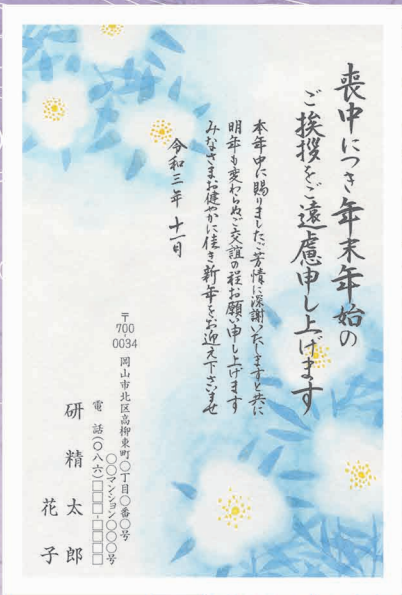 喪中につき年末年始の
ご挨拶をご遠慮申し上げます
本年中に賜りましたご芳情に深謝いたしますと共に
明年も変わらぬご交誼の程お願い申し上げます
みなさまお健やかに佳き新年をお迎え下さいませ
令和三年 十一月
〒700-0034
岡山市北区高柳東町〇丁目〇番〇号
〇〇マンション〇〇〇号
電 話(〇八六)□□□-□□□□
研 精 太 郎
花 子